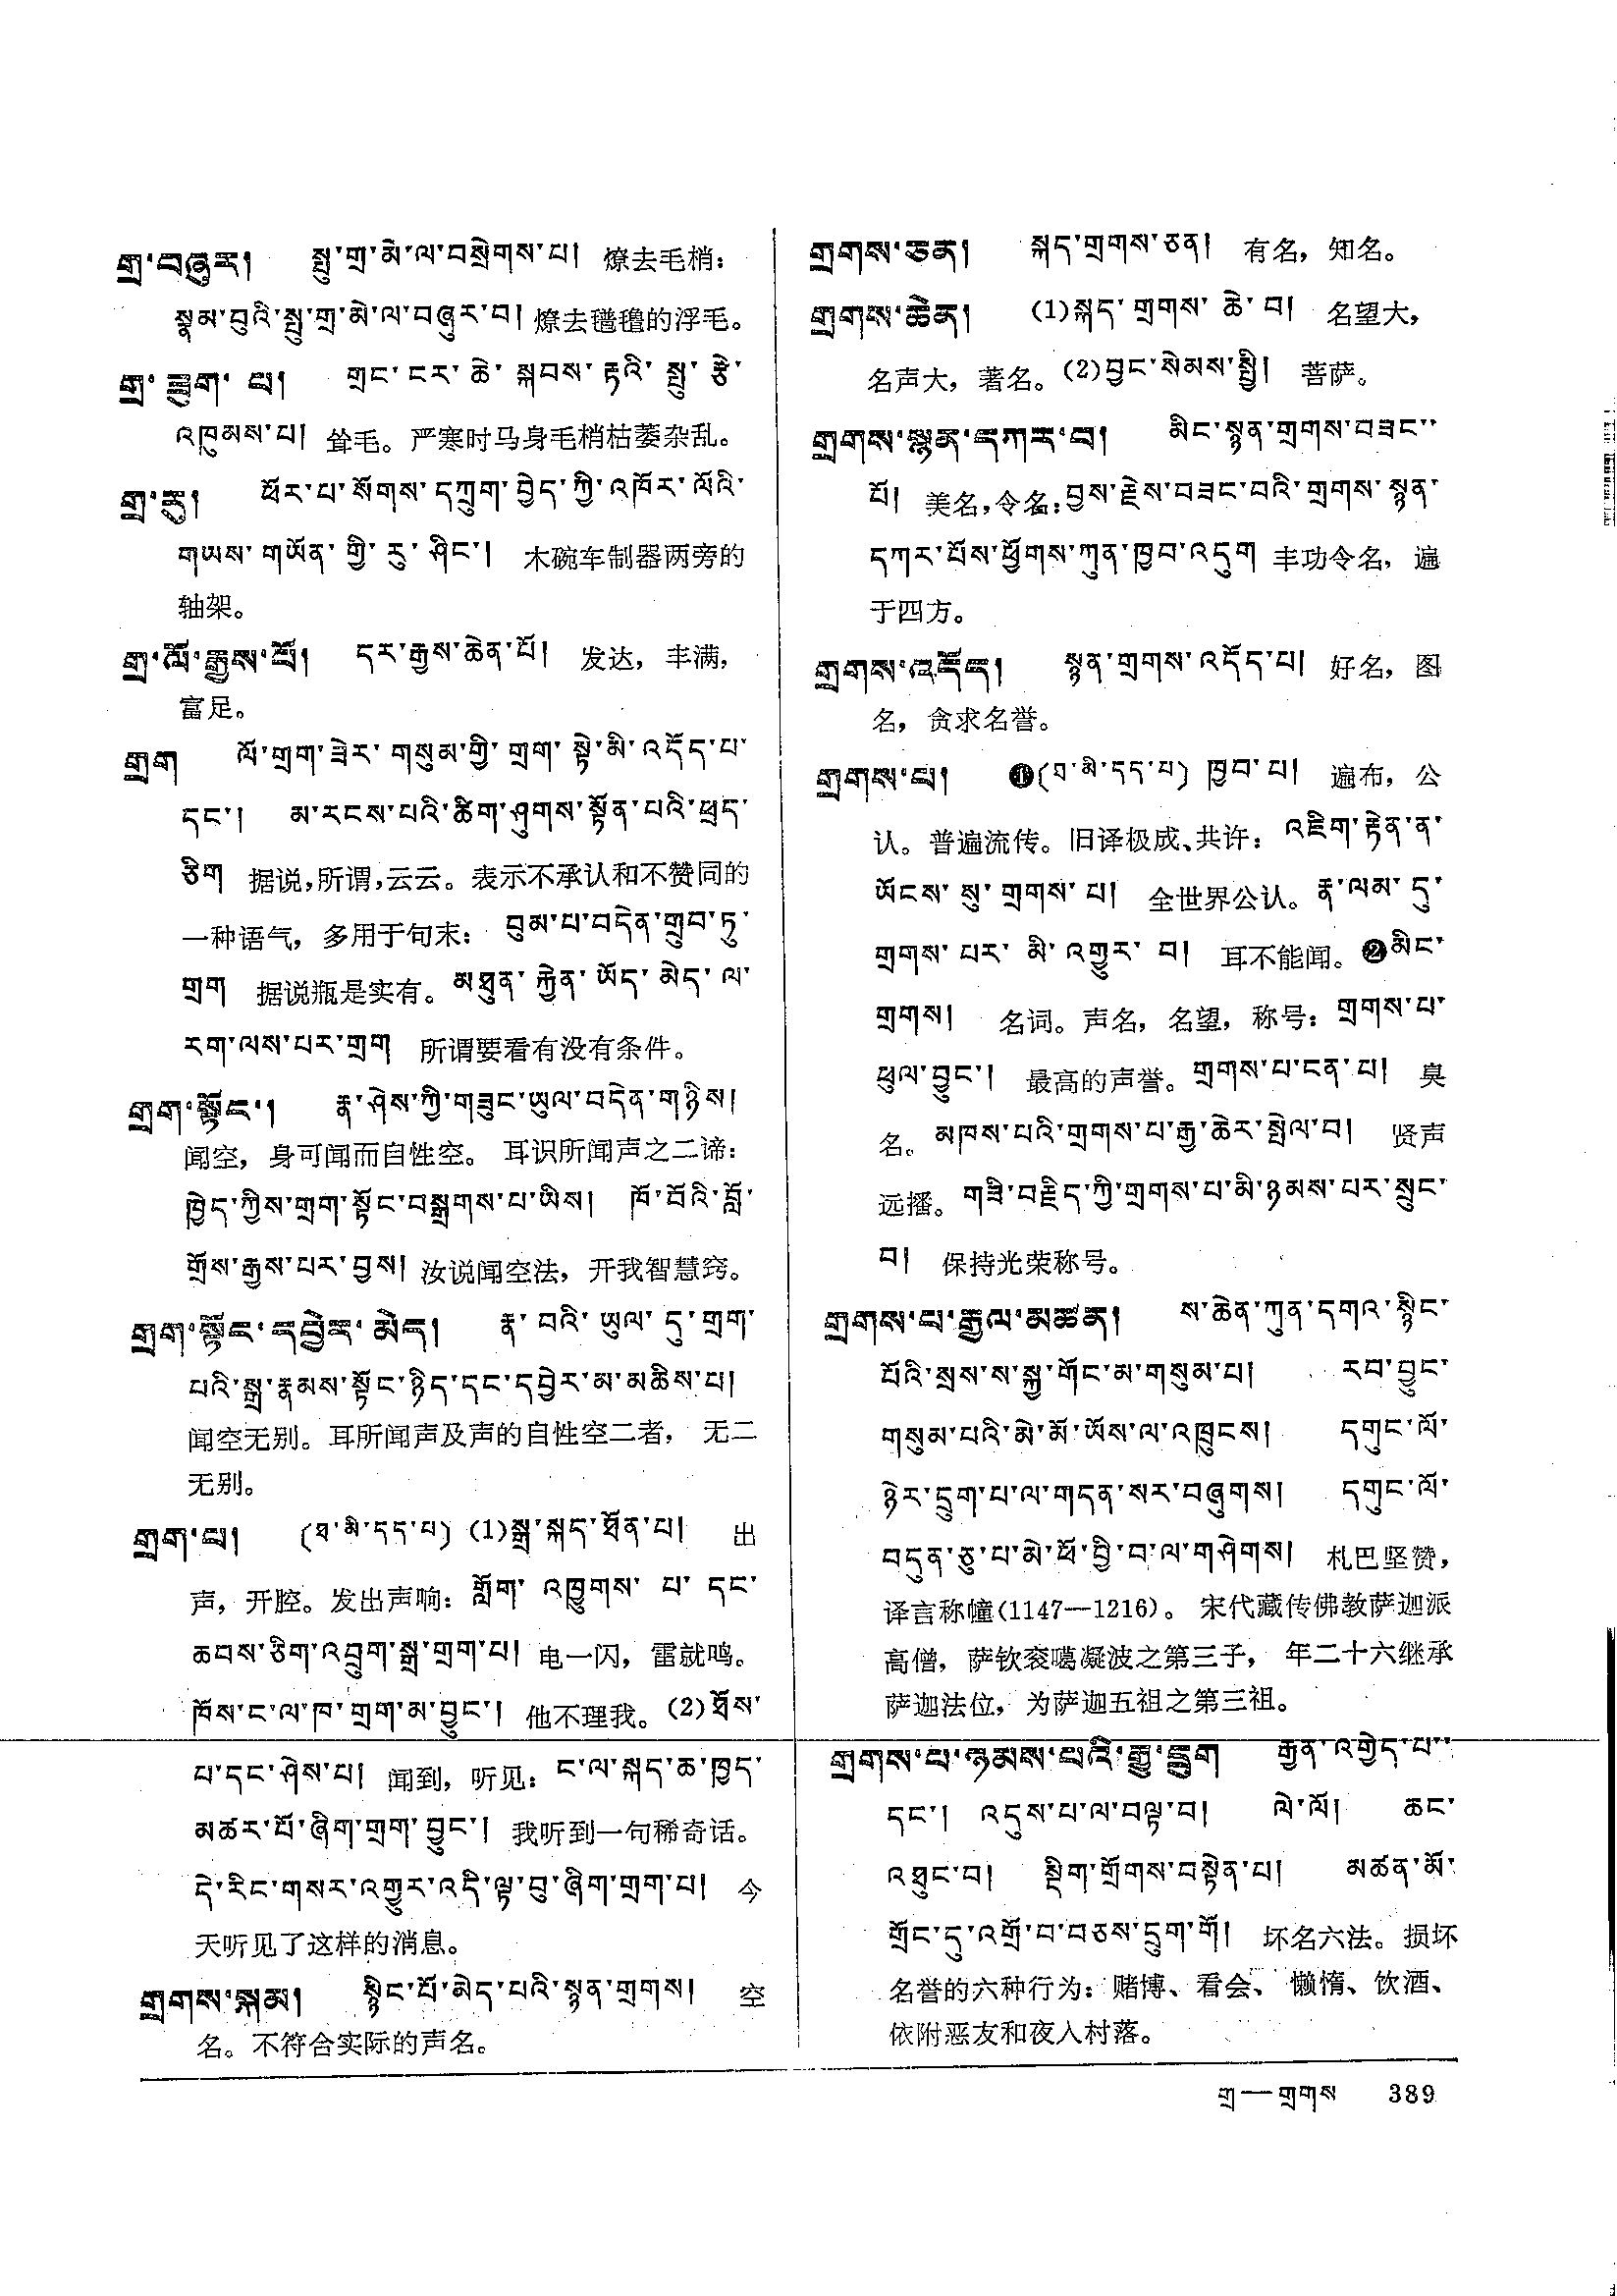 གྲ་བཞུར། སྤུ་གྲ་མེ་ལ་བསྲེགས་པ། 燎去毛梢：
སྣམ་བུའི་སྤུ་གྲ་མེ་ལ་བཞུར་བ། 燎去氆氇的浮毛。
གྲ་ཟུག་པ། གྲང་ངར་ཆེ་སྐབས་རྟའི་སྤུ་རྩེ་
འཁུམས་པ། 耸毛。严寒时马身毛梢枯萎杂乱。
གྲ་རུ། ཕོར་པ་སོགས་དཀྲུག་བྱེད་ཀྱི་འཁོར་ལོའི་
གཡས་གཡོན་གྱི་རུ་ཤིང་། 木碗车制器两旁的
轴架。
གྲ་ལོ་རྒྱས་པོ། དར་རྒྱས་ཆེན་པོ། 发达，丰满，
富足。
གྲག ལོ་གྲག་ཟེར་གསུམ་གྱི་གྲག་སྟེ་མི་འདོད་པ་
དང་། མ་རངས་པའི་ཚིག་ཤུགས་སྟོན་པའི་ཕྲད་
ཅིག 据说，所谓，云云。表示不承认和不赞同的
一种语气，多用于句末： བུམ་པ་བདེན་གྲུབ་ཏུ་
གྲག 据说瓶是实有。མཐུན་རྐྱེན་ཡོད་མེད་ལ་
རག་ལས་པར་གྲག 所谓要看有没有条件。
གྲག་སྟོང་། རྣ་ཤེས་ཀྱི་གཟུང་ཡུལ་བདེན་གཉིས།
闻空，身可闻而自性空。 耳识所闻声之二谛：
ཁྱེད་ཀྱིས་གྲག་སྟོང་བསྒྲགས་པ་ཡིས། ཁོ་བོའི་བློ་
གྲོས་རྒྱས་པར་བྱས། 汝说闻空法，开我智慧窍。
གྲག་སྟོང་དབྱེར་མེད། རྣ་བའི་ཡུལ་དུ་གྲག་
པའི་སྒྲ་རྣམས་སྟོང་ཉིད་དང་དབྱེར་མ་མཆིས་པ།
闻空无别。耳所闻声及声的自性空二者， 无二
无别。
གྲག་པ། (ཐ་མི་དད་པ) (1)སྒྲ་སྐད་ཐོན་པ། 出
声，开腔。发出声响：གློག་འཁྱུགས་པ་དང་
ཆབས་ཅིག་འབྲུག་སྒྲ་གྲག་པ། 电一闪，雷就鸣。
ཁོས་ང་ལ་ཁ་གྲག་མ་བྱུང་། 他不理我。(2)ཐོས་
པ་དང་ཤེས་པ། 闻到，听见：ང་ལ་སྐད་ཆ་ཁྱད་
མཚར་པོ་ཞིག་གྲག་བྱུང་། 我听到一句稀奇话。
དེ་རིང་གསར་འགྱུར་འདི་ལྟ་བུ་ཞིག་གྲག་པ། 今
天听见了这样的消息。
གྲགས་སྐམ། སྙིང་པོ་མེད་པའི་སྙན་གྲགས། 空
名。不符合实际的声名。
གྲགས་ཅན། སྐད་གྲགས་ཅན། 有名，知名。
གྲགས་ཆེན། (1)སྐད་གྲགས་ཆེ་བ། 名望大，
名声大，著名。(2)བྱང་སེམས་སྤྱི། 菩萨。
གྲགས་སྙན་དཀར་བ། མིང་སྙན་གྲགས་བཟང་་
པོ། 美名，令名：བྱས་རྗེས་བཟང་བའི་གྲགས་སྙན་
དཀར་པོས་ཕྱོགས་ཀུན་ཁྱབ་འདུག 丰功令名，遍
于四方。
གྲགས་འདོད། སྙན་གྲགས་འདོད་པ། 好名，图
名，贪求名誉。
གྲགས་པ། ❶(ཐ་མི་དད་པ) ཁྱབ་པ། 遍布，公
认。普遍流传。旧译极成、共许：འཇིག་རྟེན་ན་
ཡོངས་སུ་གྲགས་པ། 全世界公认。རྣ་ལམ་དུ་
གྲགས་པར་མི་འགྱུར་བ། 耳不能闻。❷མིང་
གྲགས། 名词。声名，名望，称号：གྲགས་པ་
ཕུལ་བྱུང་། 最高的声誉。གྲགས་པ་ངན་པ། 臭
名。མཁས་པའི་གྲགས་པ་རྒྱ་ཆེར་སྤེལ་བ། 贤声
远播。གཟི་བརྗིད་ཀྱི་གྲགས་པ་མི་ཉམས་པར་སྲུང་
བ། 保持光荣称号。
གྲགས་པ་རྒྱལ་མཚན། ས་ཆེན་ཀུན་དགའ་སྙིང་
པོའི་སྲས་ས་སྐྱ་གོང་མ་གསུམ་པ། རབ་བྱུང་
གསུམ་པའི་མེ་མོ་ཡོས་ལ་འཁྲུངས། དགུང་ལོ་
ཉེར་དྲུག་པ་ལ་གདན་སར་བཞུགས། དགུང་ལོ་
བདུན་ཅུ་པ་མེ་ཕོ་བྱི་བ་ལ་གཤེགས། 札巴坚赞，
译言称幢(1147—1216)。 宋代藏传佛教萨迦派
高僧，萨钦衮噶凝波之第三子， 年二十六继承
萨迦法位，为萨迦五祖之第三祖。
གྲགས་པ་ཉམས་པའི་རྒྱུ་དྲུག རྒྱན་འགྱེད་པ་་
དང་། འདུས་པ་ལ་བལྟ་བ། ལེ་ལོ། ཆང་
འཐུང་བ། སྡིག་གྲོགས་བསྟེན་པ། མཚན་མོ་
གྲོང་དུ་འགྲོ་བ་བཅས་དྲུག་གོ། 坏名六法。损坏
名誉的六种行为：赌博、看会、 懒惰、饮酒、
依附恶友和夜入村落。
གྲ—གྲགས 389